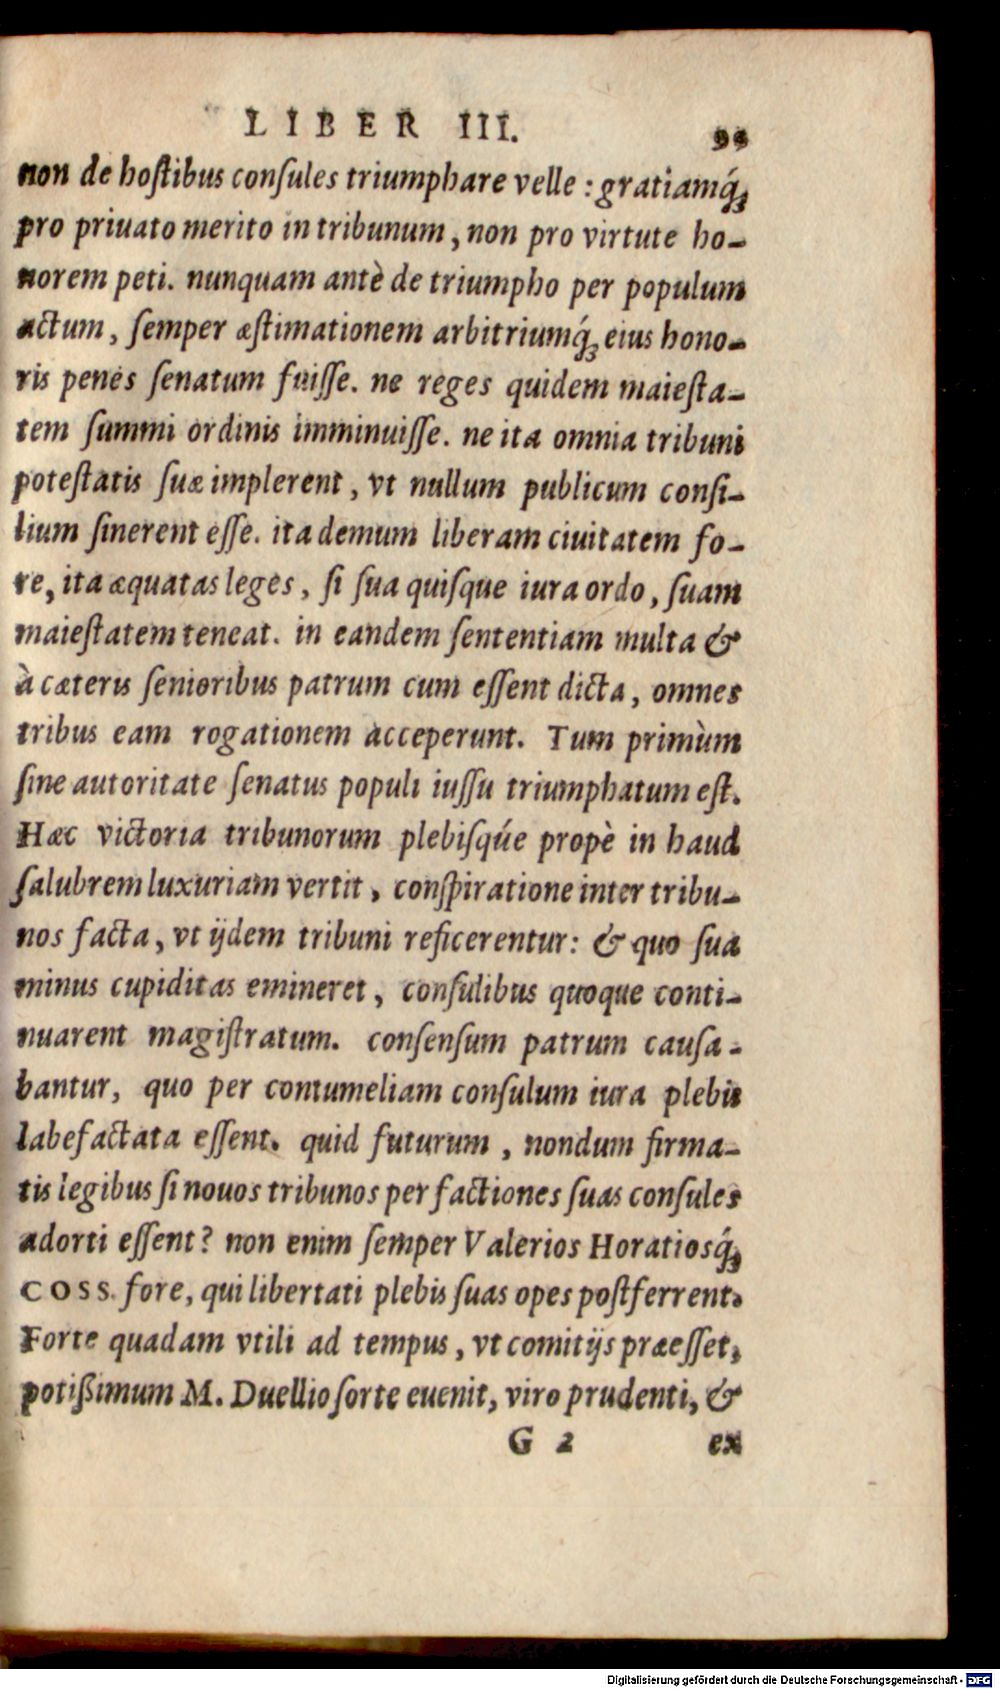 LIBER III. 99
non de hoſtibus conſules triumphare velle : gratiamq́;
pro priuato merito in tribunum, non pro virtute ho-
norem peti. nunquam antè de triumpho per populum
actum, ſemper æſtimationem arbitriumq́; eius hono-
ris penes ſenatum fuiſſe. ne reges quidem maieſta-
tem ſummi ordinis imminuiſſe. ne ita omnia tribuni
poteſtatis ſuæ implerent, vt nullum publicum conſi-
lium ſinerent eſſe. ita demum liberam ciuitatem fo-
re, ita æquatas leges, ſi ſua quiſque iura ordo, ſuam
maieſtatem teneat. in eandem ſententiam multa &
à cæteris ſenioribus patrum cum eſſent dicta, omnes
tribus eam rogationem acceperunt. Tum primùm
ſine autoritate ſenatus populi iuſſu triumphatum eſt.
Hæc victoria tribunorum plebiſqúe propè in haud
ſalubrem luxuriam vertit, conſpiratione inter tribu-
nos facta, vt ijdem tribuni reficerentur: & quo ſua
minus cupiditas emineret, conſulibus quoque conti-
nuarent magiſtratum. conſenſum patrum cauſa-
bantur, quo per contumeliam conſulum iura plebis
labefactata eſſent. quid futurum, nondum firma-
tis legibus ſi nouos tribunos per factiones ſuas conſules
adorti eſſent? non enim ſemper Valerios Horatiosq́;
COSS. fore, qui libertati plebis ſuas opes poſtferrent.
Forte quadam vtili ad tempus, vt comitijs præeſſet,
potißimum M. Duellio ſorte euenit, viro prudenti, &
G 2 ex
Digitalisierung gefördert durch die Deutsche Forschungsgemeinschaft - DFG